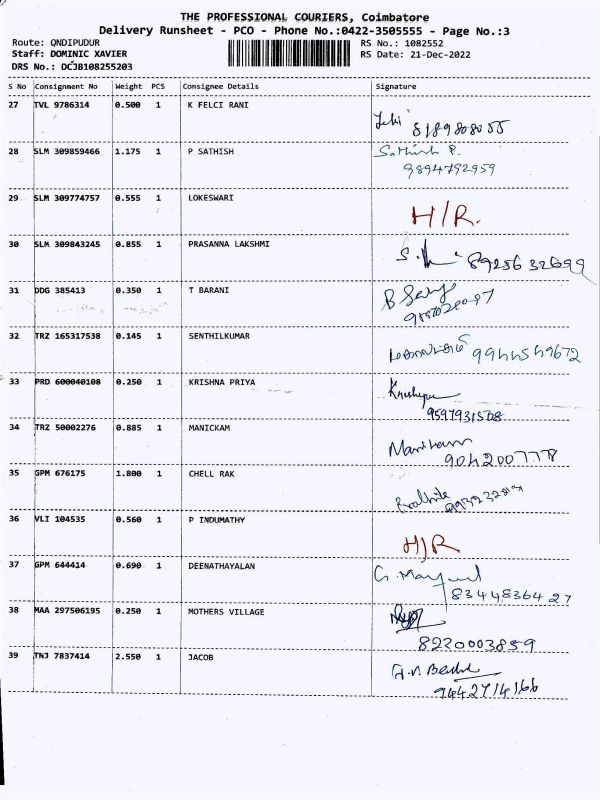 THE PROFESSIONAL COURIERS, Coimbatore
Delivery Runsheet - PCO - Phone No.:0422-3505555 - Page No.:3
Route: QNDIPUDUR RS No.: 1082552
Staff: DOMINIC XAVIER RS Date: 21-Dec-2022
DRS No.: DCJB108255203
S No Consignment No Weight PCS Consignee Details Signature
27 TVL 9786314 0.500 1 K FELCI RANI
8189808055
28 SLM 309859466 1.175 1 P SATHISH Sathish P.
9894792959
29 SLM 309774757 0.555 1 LOKESWARI
H/R.
30 SLM 309843245 0.855 1 PRASANNA LAKSHMI
8925632699
31 DDG 385413 0.350 1 T BARANI
32 TRZ 165317538 0.145 1 SENTHILKUMAR
9944549672
33 PRD 600040108 0.250 1 KRISHNA PRIYA
9597931508
34 TRZ 50002276 0.885 1 MANICKAM
Manikam
9042007778
35 GPM 676175 1.800 1 CHELL RAK
36 VLI 104535 0.560 1 P INDUMATHY
H/R
37 GPM 644414 0.690 1 DEENATHAYALAN
8344836427
38 MAA 297506195 0.250 1 MOTHERS VILLAGE
8220003859
39 TNJ 7837414 2.550 1 JACOB
9442714166